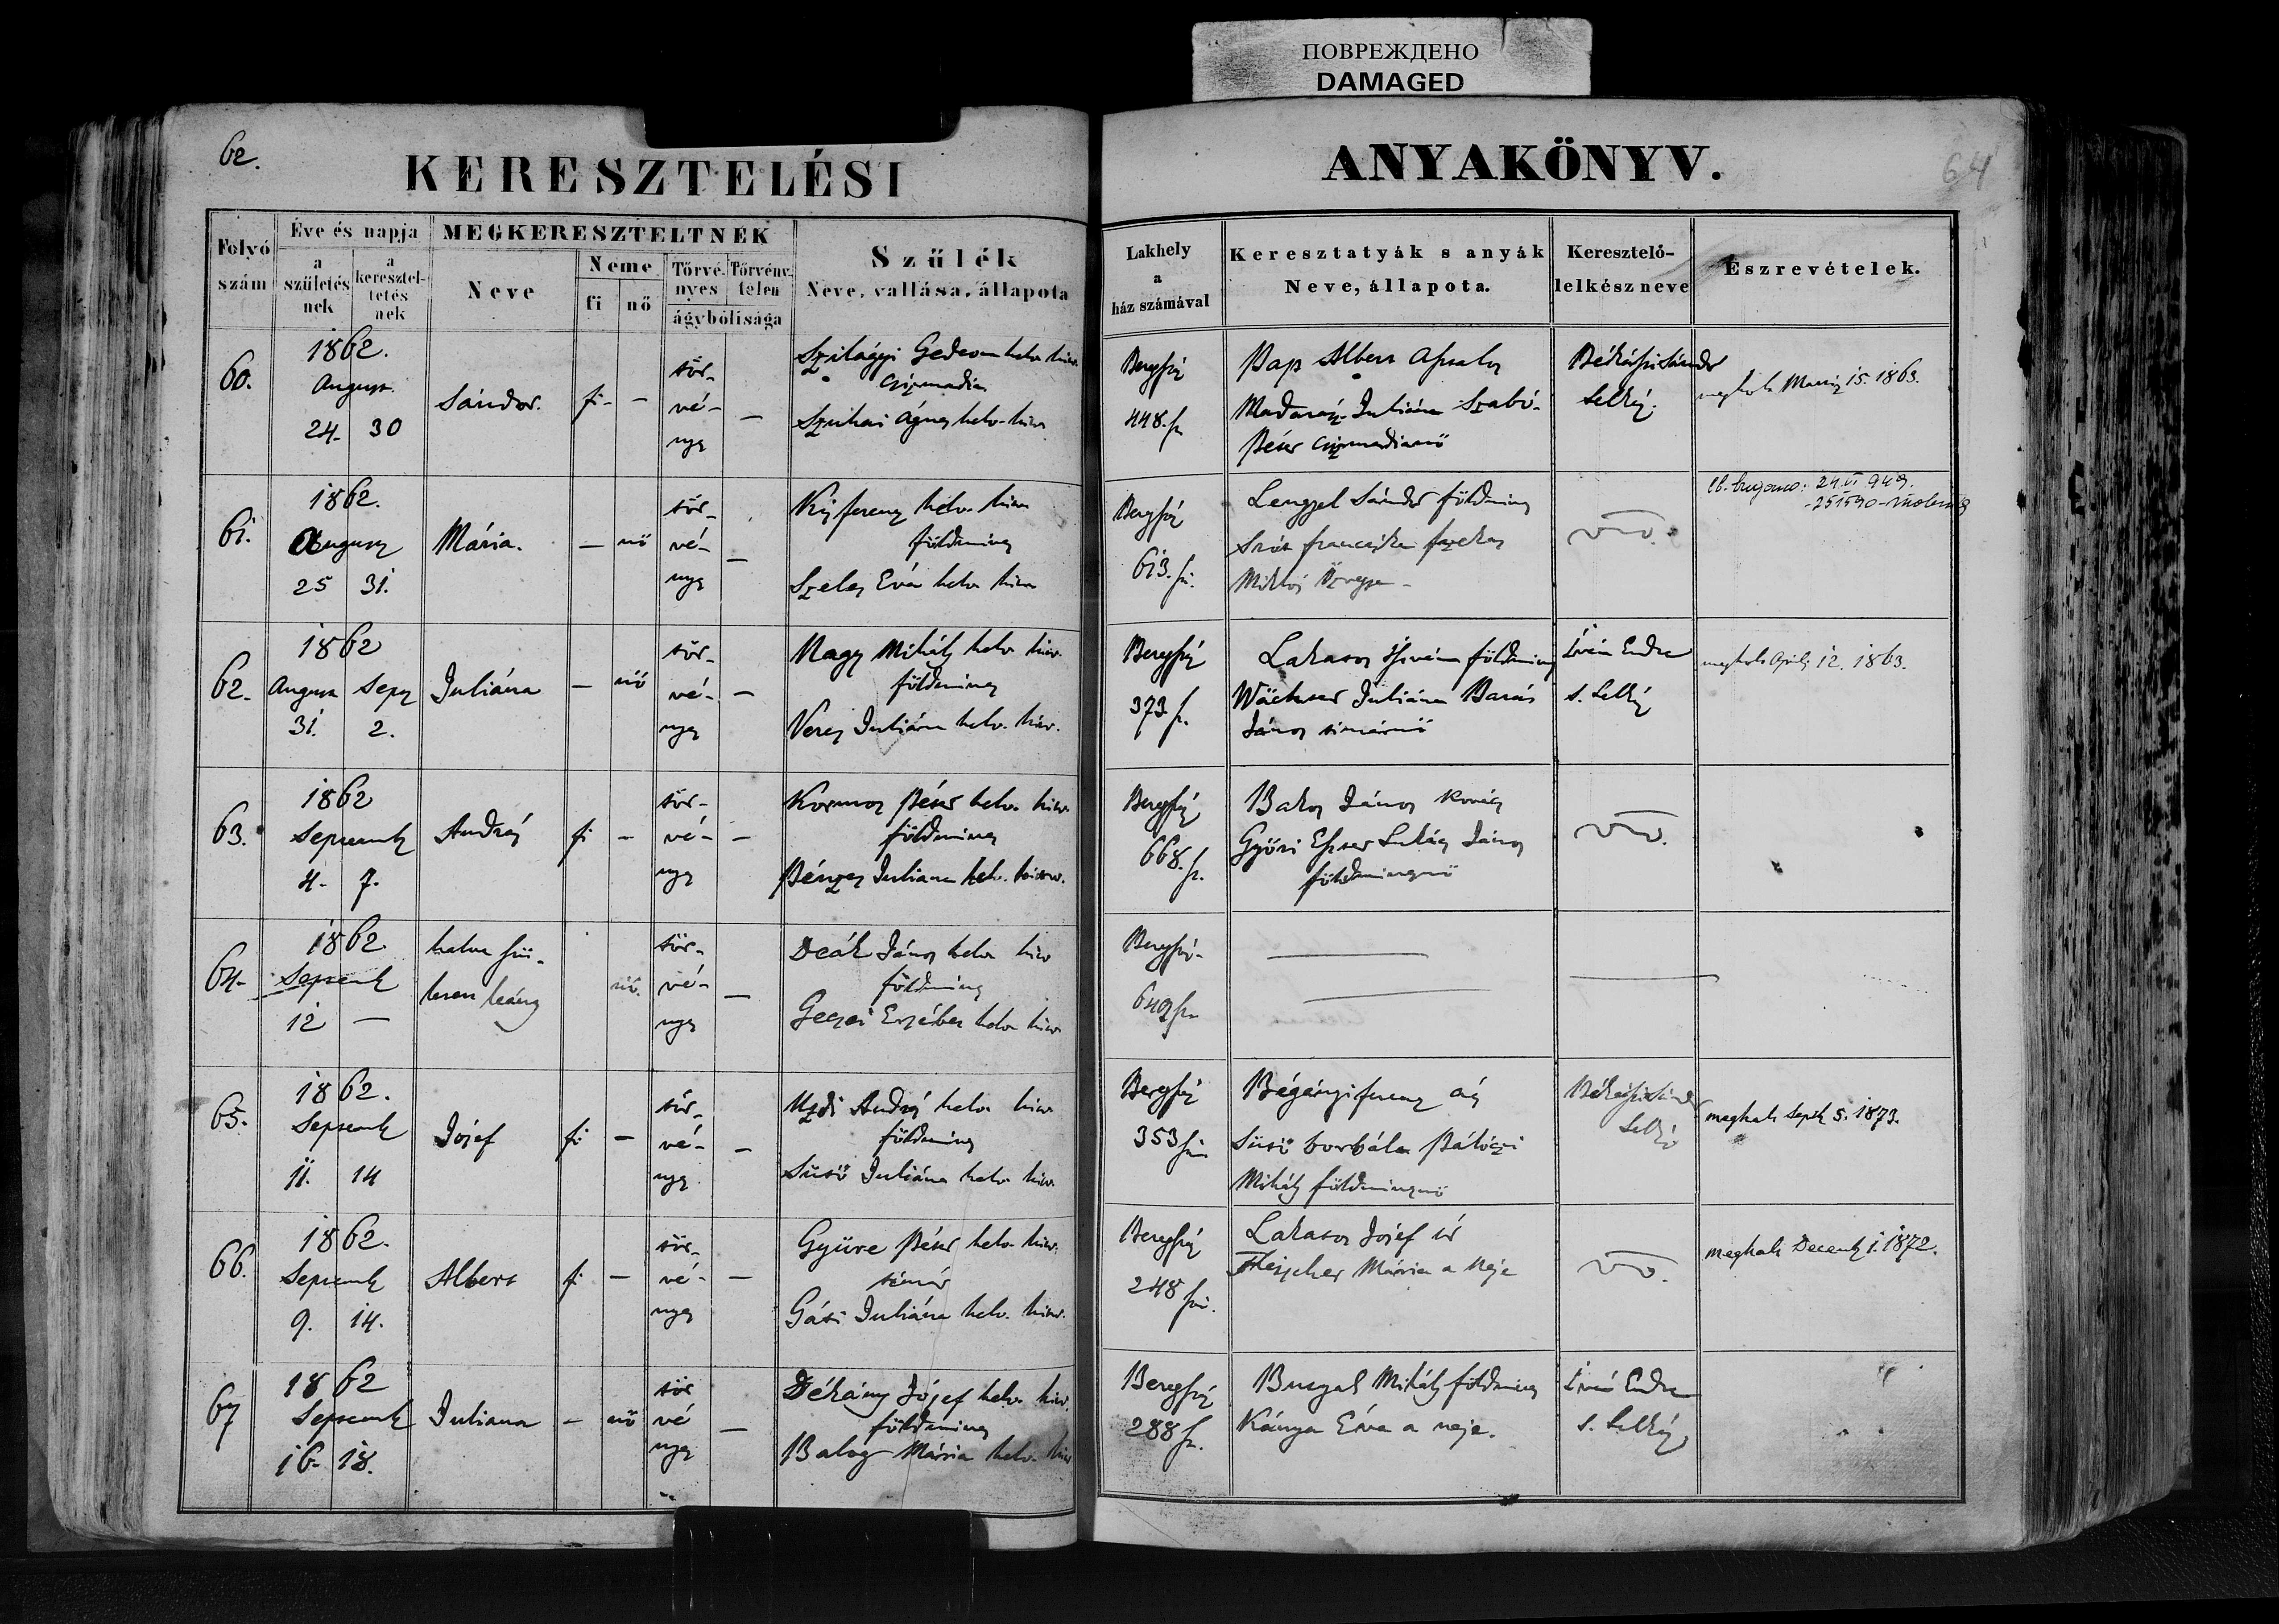 ПОВРЕЖДЕНО
DAMAGED
62.
KERESZTELÉSI
ANYAKÖNYV.
64
Folyó szám
Éve és napja
a születés nek
a keresztel- tetés nek
MEGKERESZTELTNEK
Neve
Neme
fi
nő
Törvé- nyes
Törvény- telen
ágybólisága
Szülék
Neve, vallása, állapota
Lakhely a ház számával
Keresztatyák s anyák
Neve, állapota.
Keresztelő- lelkész neve
Észrevételek.
60.
1862.
August.
24. 30
Sándor.
fi - -
tör-
vé-
nyes
-
Szilágyi Gedeon helv. hitv.
csizmadia
Szuhai Ágnes helv. hitv.
Bergszász
448. sz.
Pap Albert asztalos
Madarász Juliána Szabó
Péter csizmadianő
Békássi Sándor
Lelkész.
meghalt 15. 1863.
61.
1862.
August
25 31.
Mária.
- nő
tör-
vé-
nyes
-
Kis Ferenz helv. hitv.
földmives
Szeles Éva helv. hitv.
Bergszász
613. sz.
Lengyel Sándor földmives
Francziska
Miklós özvegye
62.
1862
August Sept
31. 2.
Juliána
- nő
tör-
vé-
nyes
-
Nagy Mihály helv. hitv.
földmives
Veres Juliána helv. hitv.
Bergszász
373. sz.
Lakatos István földmives
Juliána
János timárnő
Iván Endre
s. Lelkész
meghalt April 12. 1863.
63.
1862
Septemb
4. 7.
András
fi -
tör-
vé-
nyes
-
Kormos Péter helv. hitv.
földmives
Pénzes Juliana helv. hitv.
Bergszász
668. sz.
Bakos János Kovács
Györi Eszter János
földmivesnő
64.
1862.
Septemb
12 -
halva szü-
letett leány
nő.
tör-
vé-
nyes
-
Deák János helv. hitv.
földmives
Geczei Erzsébet helv. hitv.
Bergszász
649 sz.
65.
1862.
Septemb
11. 14
József
fi -
tör-
vé-
nyes
-
Uzdi András helv. hitv.
földmives
Sütő Juliána helv. hitv.
Bergszász
353 sz.
Bégányi Ferenz ács
Sütő borbála Pálóczi
Mihály földmivesnő
Békássi Sándor
Lelkész
meghalt Septb 5. 1873.
66.
1862.
Septemb
9. 14.
Albert
fi -
tör-
vé-
nyes
-
Gyüre Péter helv. hitv.
timár
Gáti Juliána helv. hitv.
Bergszász
248 sz.
Lakatos József úr
Fleischer Mária a neje
meghalt Decemb 1. 1872.
67
1862
Septemb
16. 18.
Juliana
- nő
tör
vé
nyes
-
Dékány József helv. hitv.
földmives
Balog Mária helv. hitv.
Bergszász
288 sz.
Mihály földmives
Kánya Éva a neje.
Iván Endre
s. Lelkész